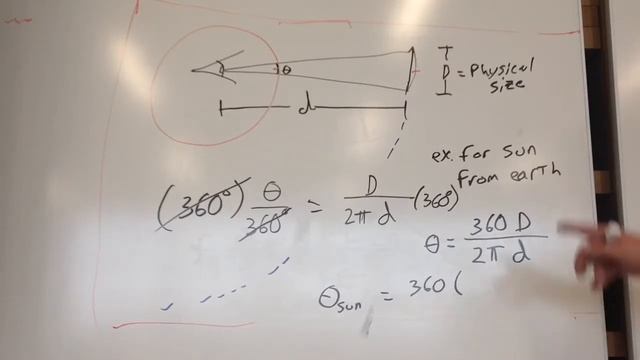 θ
D = Physical
size
d
ex. for sun
from earth
(360°) θ/360° = D/2π d (360°)
θ = 360 D/2π d
θsun = 360 (